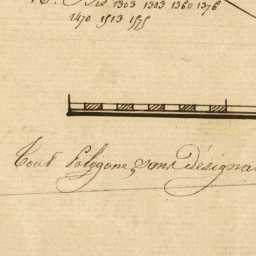 1303 1303 1360 1376
1470 1513
Tout Polygone, sans désigna